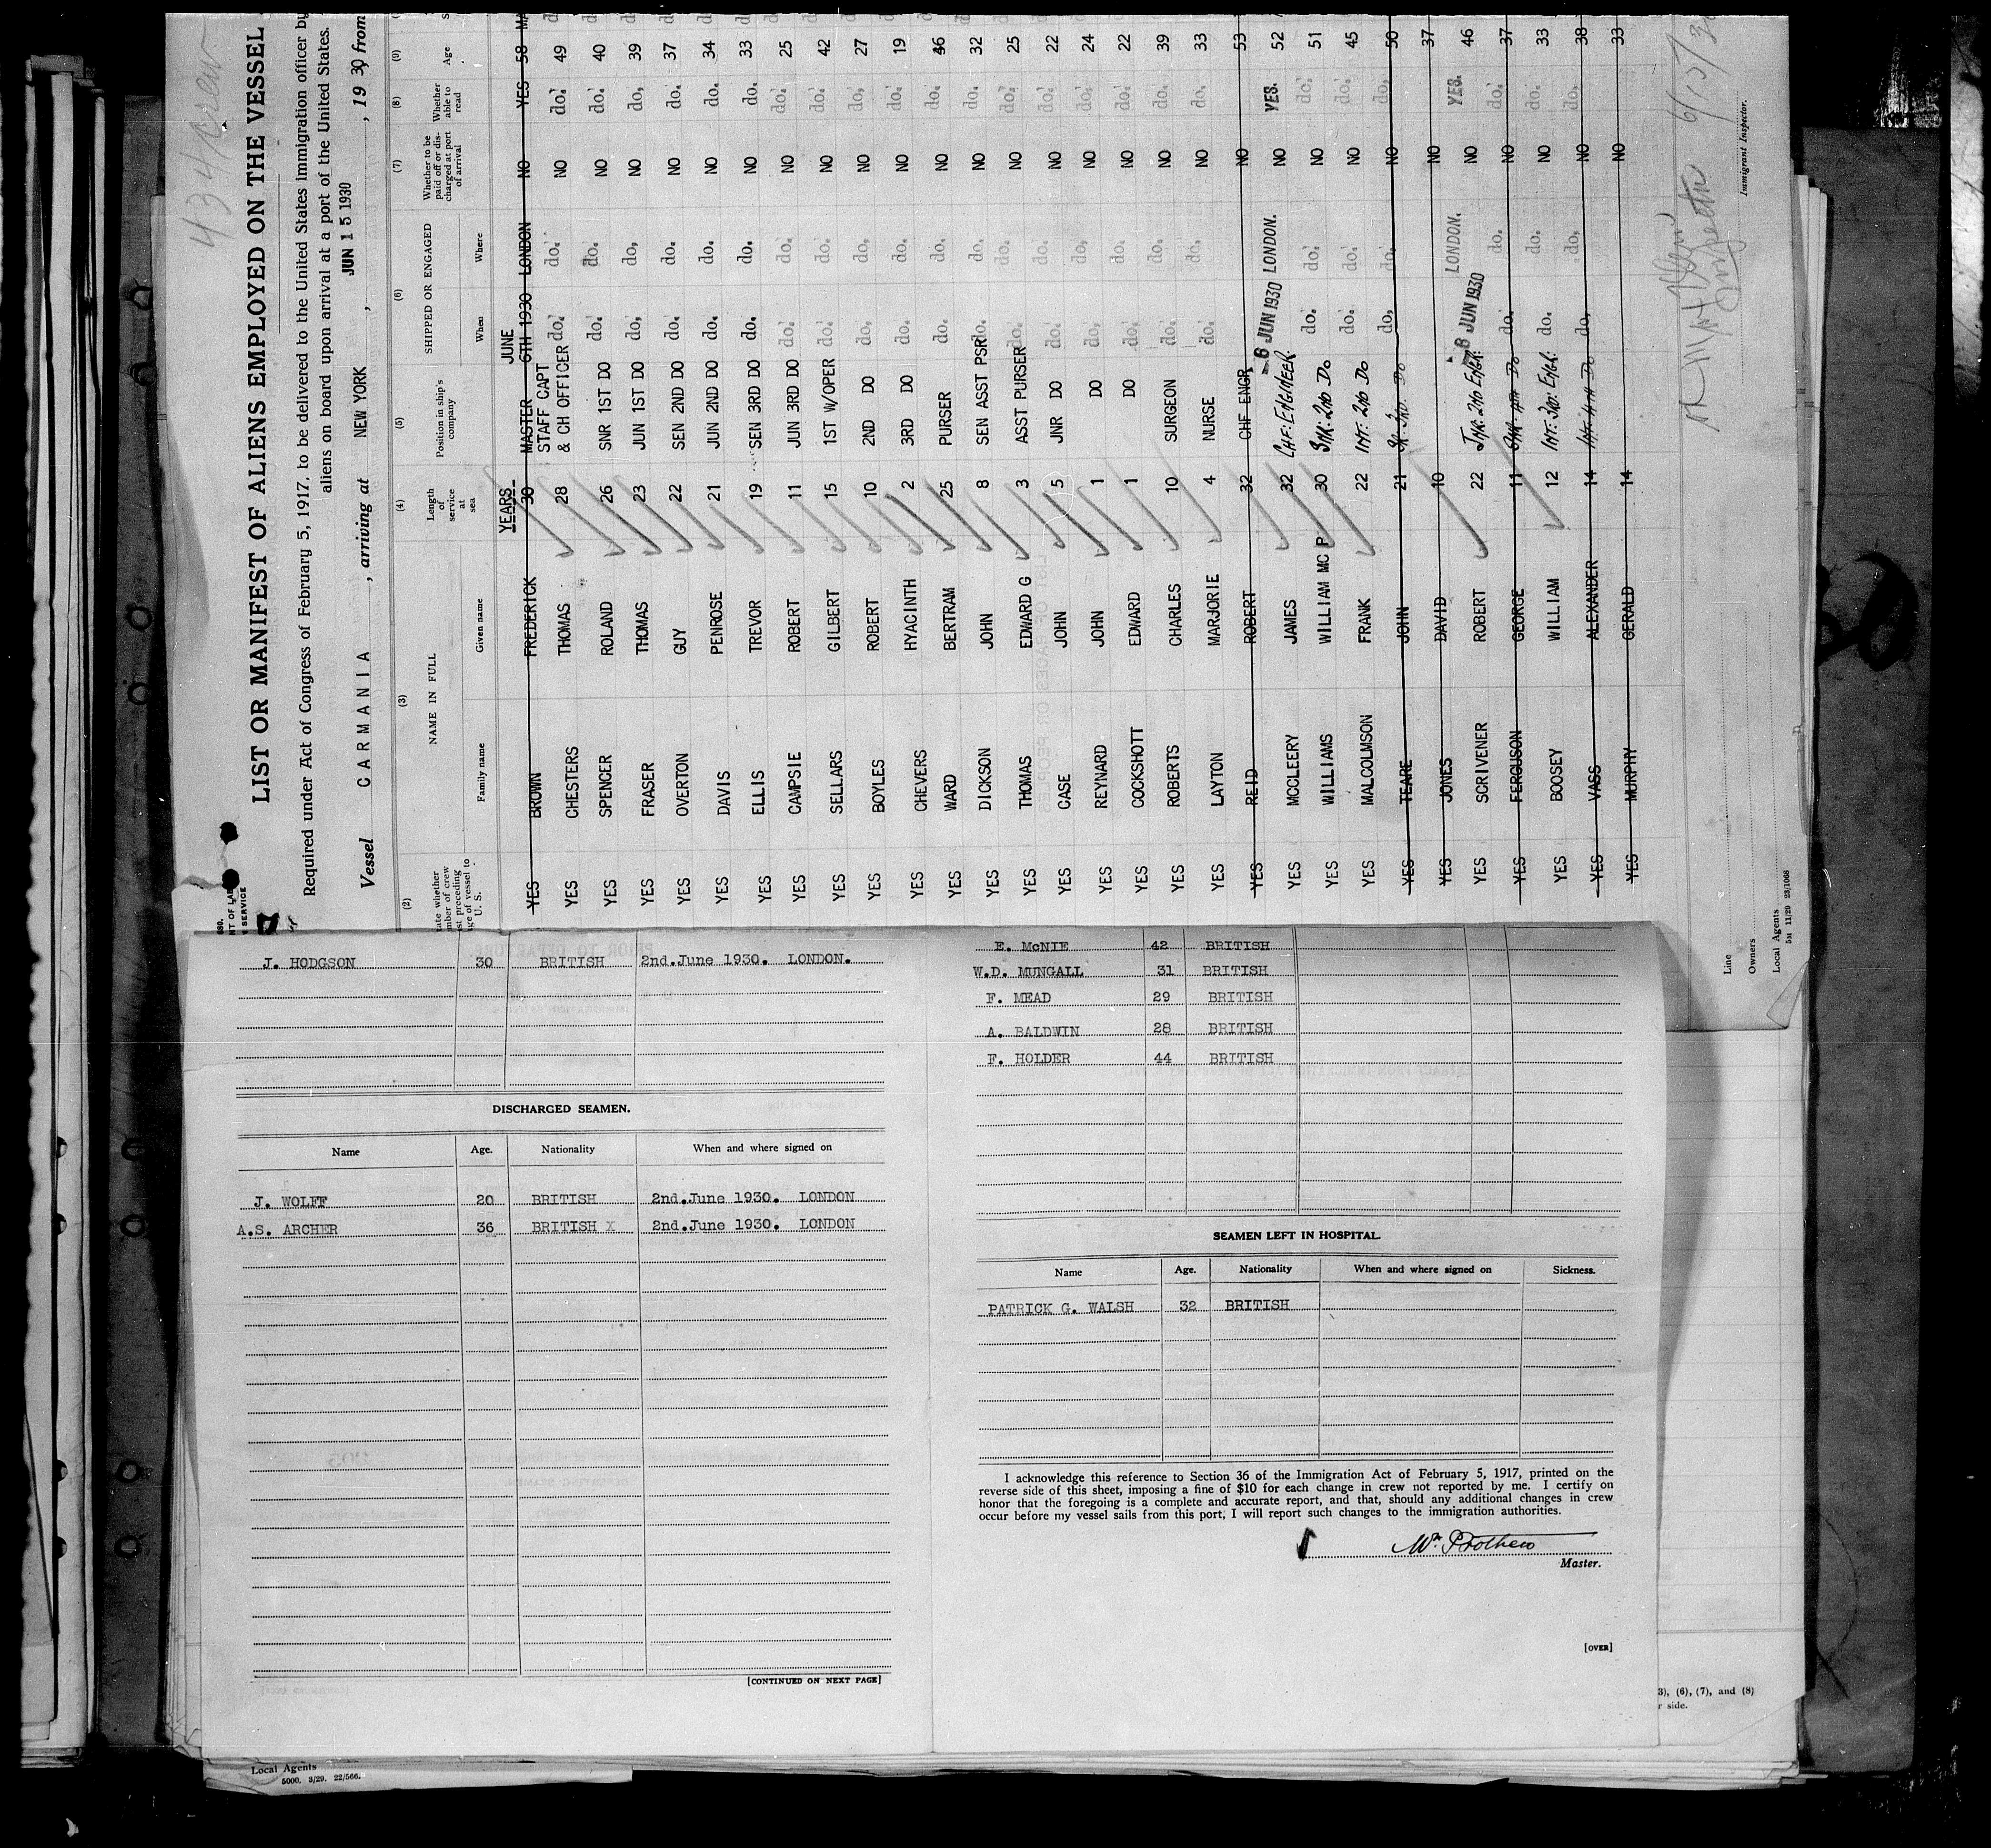 434 Crew
LIST OR MANIFEST OF ALIENS EMPLOYED ON THE VESSEL
Required under Act of Congress of February 5, 1917, to be delivered to the United States immigration officer by
aliens on board upon arrival at a port of the United States.
Vessel CARMANIA , arriving at NEW YORK , JUN 15 1930 , 19 30, from
(2) (3) (4) (5) (6) (7) (8) (9)
NAME IN FULL
SHIPPED OR ENGAGED
Family name Given name Length of service at sea Position in ship's company When Where Whether to be paid off or discharged at port of arrival Whether able to read Age
YEARS JUNE
YES BROWN FREDERICK 30 MASTER 6TH 1930 LONDON NO YES 58
YES CHESTERS THOMAS 28 STAFF CAPT & CH OFFICER do. do. NO do. 49
YES SPENCER ROLAND 26 SNR 1ST DO do. do. NO do. 40
YES FRASER THOMAS 23 JUN 1ST DO do, do, NO do, 39
YES OVERTON GUY 22 SEN 2ND DO do. do. NO do. 37
YES DAVIS PENROSE 21 JUN 2ND DO do. do. NO do. 34
YES ELLIS TREVOR 19 SEN 3RD DO do. do. NO do. 33
YES CAMPSIE ROBERT 11 JUN 3RD DO do. do. NO do. 25
YES SELLARS GILBERT 15 1ST W/OPER do. do. NO do. 42
YES BOYLES ROBERT 10 2ND DO do, do, NO do, 27
YES CHEVERS HYACINTH 2 3RD DO do. do. NO do. 19
YES WARD BERTRAM 25 PURSER do. do. NO do. 46
YES DICKSON JOHN 8 SEN ASST PSR do. do. NO do. 32
YES THOMAS EDWARD G 3 ASST PURSER do. do. NO do. 25
YES CASE JOHN 5 JNR DO do. do. NO do. 22
YES REYNARD JOHN 1 DO do, do, NO do, 24
YES COCKSHOTT EDWARD 1 DO do. do. NO do. 22
YES ROBERTS CHARLES 10 SURGEON do. do. NO do. 39
YES LAYTON MARJORIE 4 NURSE do. do. NO do. 33
YES REID ROBERT 32 CHF ENGR NO 53
YES MCCLEERY JAMES 32 CHF: ENGINEER. -6 JUN 1930 LONDON. NO YES. 52
YES WILLIAMS WILLIAM MC P 30 SNR. 2ND DO do. do. NO do. 51
YES MALCOLMSON FRANK 22 INT. 2ND DO do. do. NO do. 45
YES TEARE JOHN 21 SR. 3RD. DO do, do, NO do, 50
YES JONES DAVID 10 NO 37
YES SCRIVENER ROBERT 22 JNR. 2ND ENGR. -6 JUN 1930 LONDON. NO YES. 46
YES FERGUSON GEORGE 11 SNR. 4TH DO do. do. NO do. 37
YES BOOSEY WILLIAM 12 INT. 3RD. ENGR. do. do. NO do. 33
YES VASS ALEXANDER 14 INT. 4TH DO do, do, NO do, 38
YES MURPHY GERALD 14 NO 33
Line
Owners
Local Agents
5M 11/29 23/1068
Immigrant Inspector.
J. HODGSON 30 BRITISH 2nd.June 1930. LONDON.
DISCHARGED SEAMEN.
Name Age. Nationality When and where signed on
J. WOLFF 20 BRITISH 2nd.June 1930. LONDON
A.S. ARCHER 36 BRITISH X 2nd.June 1930. LONDON
[CONTINUED ON NEXT PAGE]
E. McNIE 42 BRITISH
W.D. MUNGALL 31 BRITISH
F. MEAD 29 BRITISH
A. BALDWIN 28 BRITISH
F. HOLDER 44 BRITISH
SEAMEN LEFT IN HOSPITAL.
Name Age. Nationality When and where signed on Sickness.
PATRICK G. WALSH 32 BRITISH
I acknowledge this reference to Section 36 of the Immigration Act of February 5, 1917, printed on the
reverse side of this sheet, imposing a fine of $10 for each change in crew not reported by me. I certify on
honor that the foregoing is a complete and accurate report, and that, should any additional changes in crew
occur before my vessel sails from this port, I will report such changes to the immigration authorities.
Master.
[OVER]
3), (6), (7), and (8)
r side.
Local Agents
5000. 3/29. 22/566.